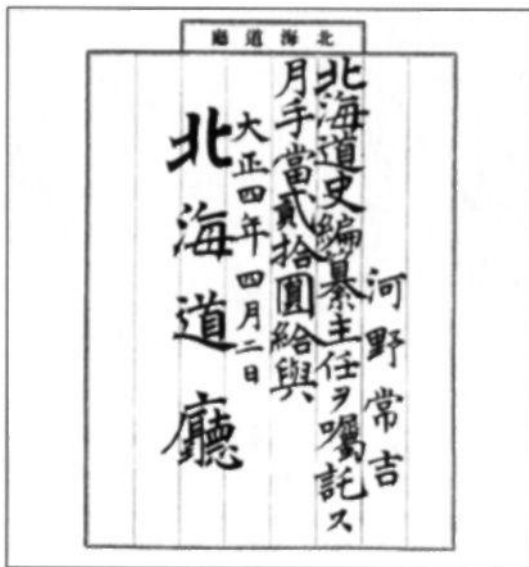 北海道廳
河野常吉
北海道史編纂主任ヲ囑託ス
月手當貳拾圓給與
大正四年四月二日
北海道廳